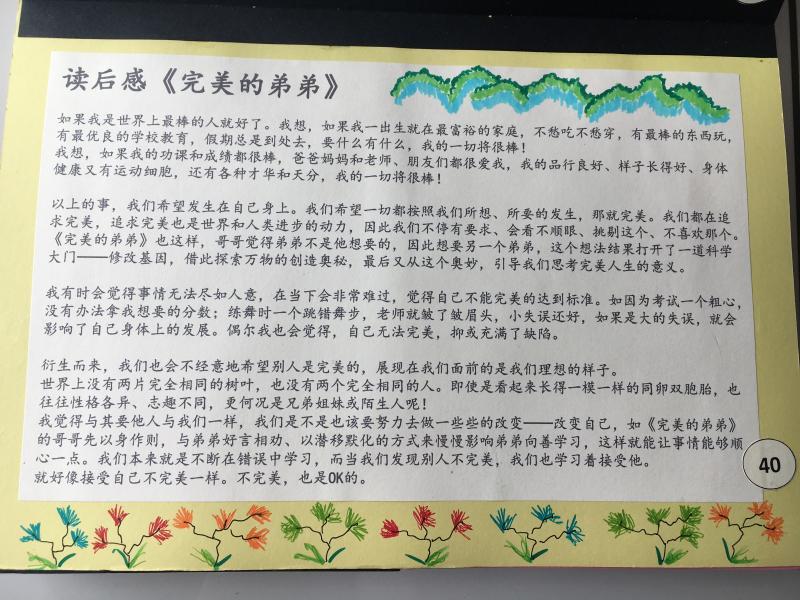 读后感《完美的弟弟》
如果我是世界上最棒的人就好了。我想，如果我一出生就在最富裕的家庭，不愁吃不愁穿，有最棒的东西玩，
有最优良的学校教育，假期总是到处去，要什么有什么，我的一切将很棒！
我想，如果我的功课和成绩都很棒，爸爸妈妈和老师、朋友们都很爱我，我的品行良好、样子长得好、身体
健康又有运动细胞，还有各种才华和天分，我的一切将很棒！
以上的事，我们希望发生在自己身上。我们希望一切都按照我们所想、所要的发生，那就完美。我们都在追
求完美，追求完美也是世界和人类进步的动力，因此我们不停有要求、会看不顺眼、挑剔这个、不喜欢那个。
《完美的弟弟》也这样，哥哥觉得弟弟不是他想要的，因此想要另一个弟弟，这个想法结果打开了一道科学
大门——修改基因，借此探索万物的创造奥秘，最后又从这个奥妙，引导我们思考完美人生的意义。
我有时会觉得事情无法尽如人意，在当下会非常难过，觉得自己不能完美的达到标准。如因为考试一个粗心，
没有办法拿我想要的分数；练舞时一个跳错舞步，老师就皱了皱眉头，小失误还好，如果是大的失误，就会
影响了自己身体上的发展。偶尔我也会觉得，自己无法完美，抑或充满了缺陷。
衍生而来，我们也会不经意地希望别人是完美的，展现在我们面前的是我们理想的样子。
世界上没有两片完全相同的树叶，也没有两个完全相同的人。即使是看起来长得一模一样的同卵双胞胎，也
往往性格各异、志趣不同，更何况是兄弟姐妹或陌生人呢！
我觉得与其要他人与我们一样，我们是不是也该要努力去做一些些的改变——改变自己，如《完美的弟弟》
的哥哥先以身作则，与弟弟好言相劝、以潜移默化的方式来慢慢影响弟弟向善学习，这样就能让事情能够顺
心一点。我们本来就是不断在错误中学习，而当我们发现别人不完美，我们也学习着接受他。
就好像接受自己不完美一样。不完美，也是OK的。
40